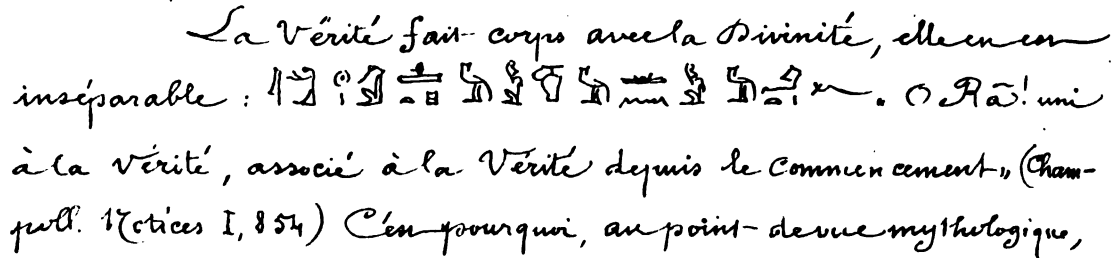 La Vérité fait corps avec la Divinité, elle en est
inséparable : . O Râ! uni
à la Vérité, associé à la Vérité depuis le commencement" (Cham-
poll. Notices I, 854) C'est pourquoi, au point de vue mythologique,